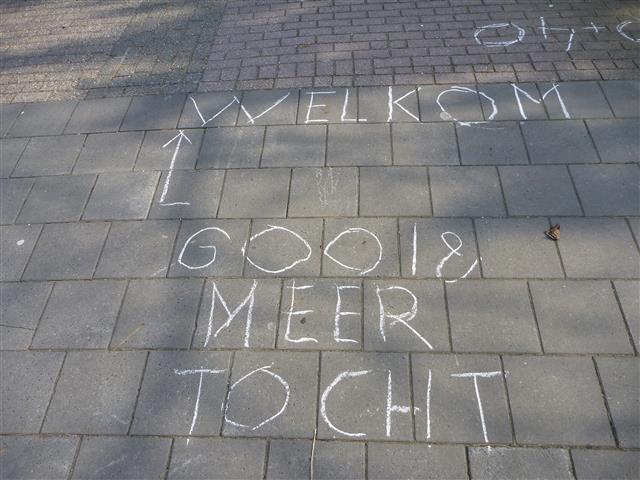 WELKOM
GOOI &
MEER
TOCHT